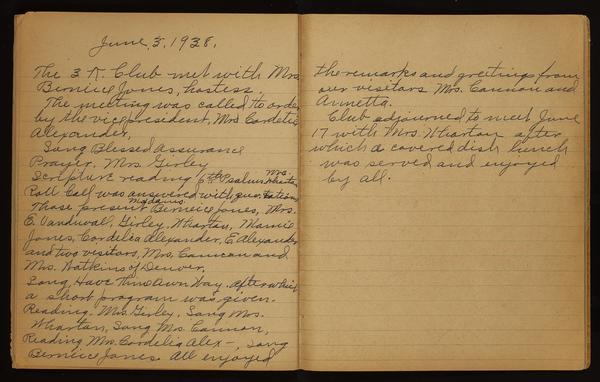 June, 3, 1938.
The 3 K. Club met with Mrs
Berniece Jones, hostess.
The meeting was called to order
by the vice president, Mrs Cordelia
Alexander,
Song Blessed Assurance
Prayer. Mrs Girley
Scripture reading 6th Psalm Mrs. Wharton
Roll Call was answered with quotations
Those present Madams Berniece Jones, Mrs.
E. Vanduval, Girley, Wharton, Mamie
Jones, Cordelia Alexander, E. Alexander
and two visitors, Mrs. Cannon and
Mrs. Watkins of Denver.
Song Have Thine Own Way. after which
a short program was given.
Reading. Mrs Girley. Song Mrs.
Wharton, Song Mrs. Cannon,
Reading Mrs. Cordelia Alex-, Song
Berniece Jones. All enjoyed
the remarks and greetings from
our visitors Mrs. Cannon and
Annetta.
Club adjourned to meet June
17 with Mrs. Wharton after
which a covered dish lunch
was served and enjoyed
by all.